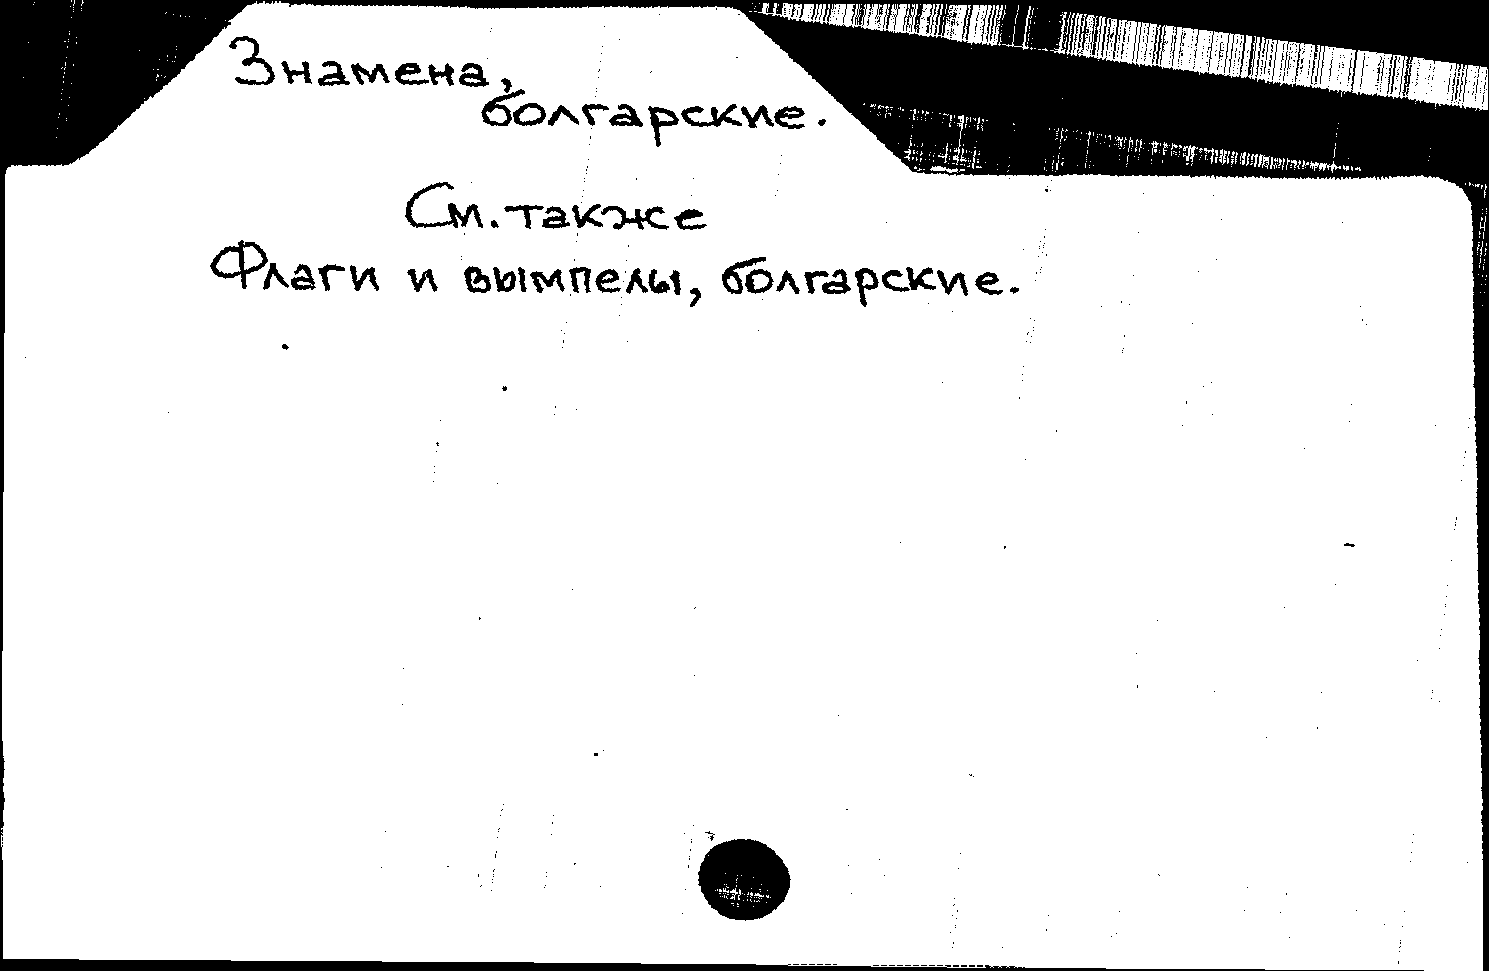 Знамена,
болгарские.
См. также
Флаги и вымпелы, болгарские.